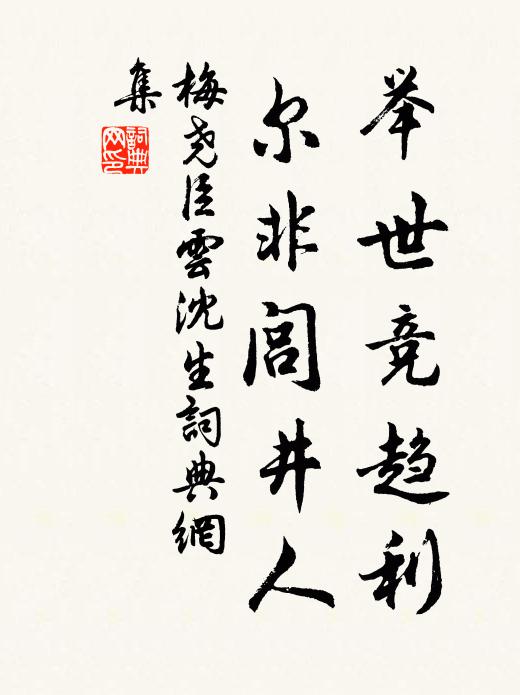 举世竞趋利
尔非闾井人
梅尧臣雲沈生詞典網
集
詞典网印